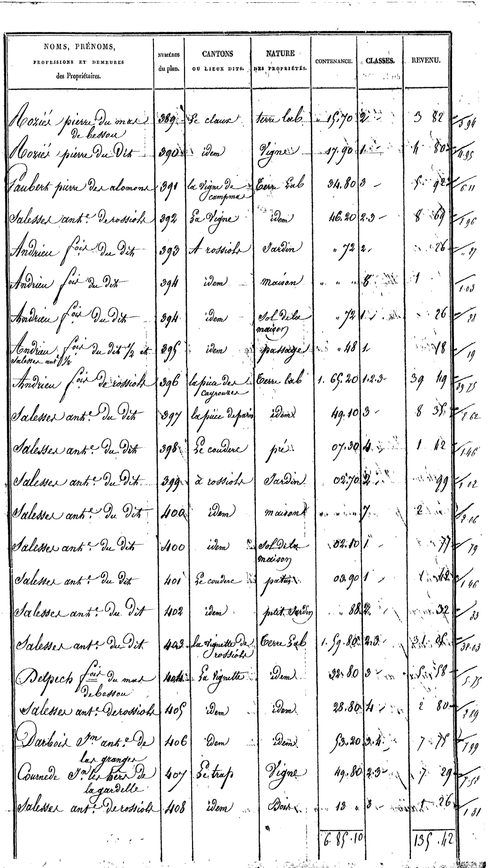 NOMS, PRÉNOMS, PROFESSIONS ET DEMEURES des Propriétaires. NUMÉROS du plan. CANTONS OU LIEUX DITS. NATURE DES PROPRIÉTÉS. CONTENANCE. CLASSES. REVENU.
Roziés pierre du mas de bessou 389 Le claux terre lab 15.70 2 3 82
Roziés pierre du dit 390 idem Vigne 17.90 1 4 80
Paubert pierre des alomons 391 la vigne de Terre Lab 34.80 3 5 92
Salesses ant.e de rossiols 392 La Vigne idem 46.20 2.3 8 69
Andrieu fois du dit 393 A rossiols Jardin " 72 2 " 26
Andrieu fois du dit 394 idem maison " " " 8 1
Andrieu fois du dit 394 idem Sol de la maison " 72 1 " 26
Andrieu fois du dit 1/2 et Salesses ant.e 1/2 395 idem passage " 48 1 18
Andrieu fois de rossiols 396 la pièce des Terre lab 1. 65.20 1.2.3 39 49
Salesses ant.e du dit 397 la pièce idem 49.10 3 8 35
Salesses ant.e du dit 398 Le couderc pré 07.30 4 1 42
Salesses ant.e du dit 399 à rossiols Jardin 02.70 2 99
Salesses ant.e du dit 400 idem maison 7 2
Salesses ant.e du dit 400 idem Sol de la maison 02.10 1 77
Salesses ant.e du dit 401 Le couderc patus 03.90 1 1
Salesses ant.e du dit 402 idem ptit Jardin " 88 2 32
Salesses ant.e du dit 403 la vignette de rossiols Terre Lab 1. 59.80 2.3 31 35
Delpech fois du mas de bessou 404 La Vignette idem 32.80 3 5 58
Salesses ant.e de rossiols 405 idem idem 28.80 4 2 80
Darbois Jn ant.e de las granges 406 idem idem 53.20 3.4 7 75
Cournede Jn les hers de la gardelle 407 Le trap Vigne 49.80 2.3 7 29
Salesses ant.e de rossiols 408 idem Bois 13 " 3 1 26
6 85.10 135.42